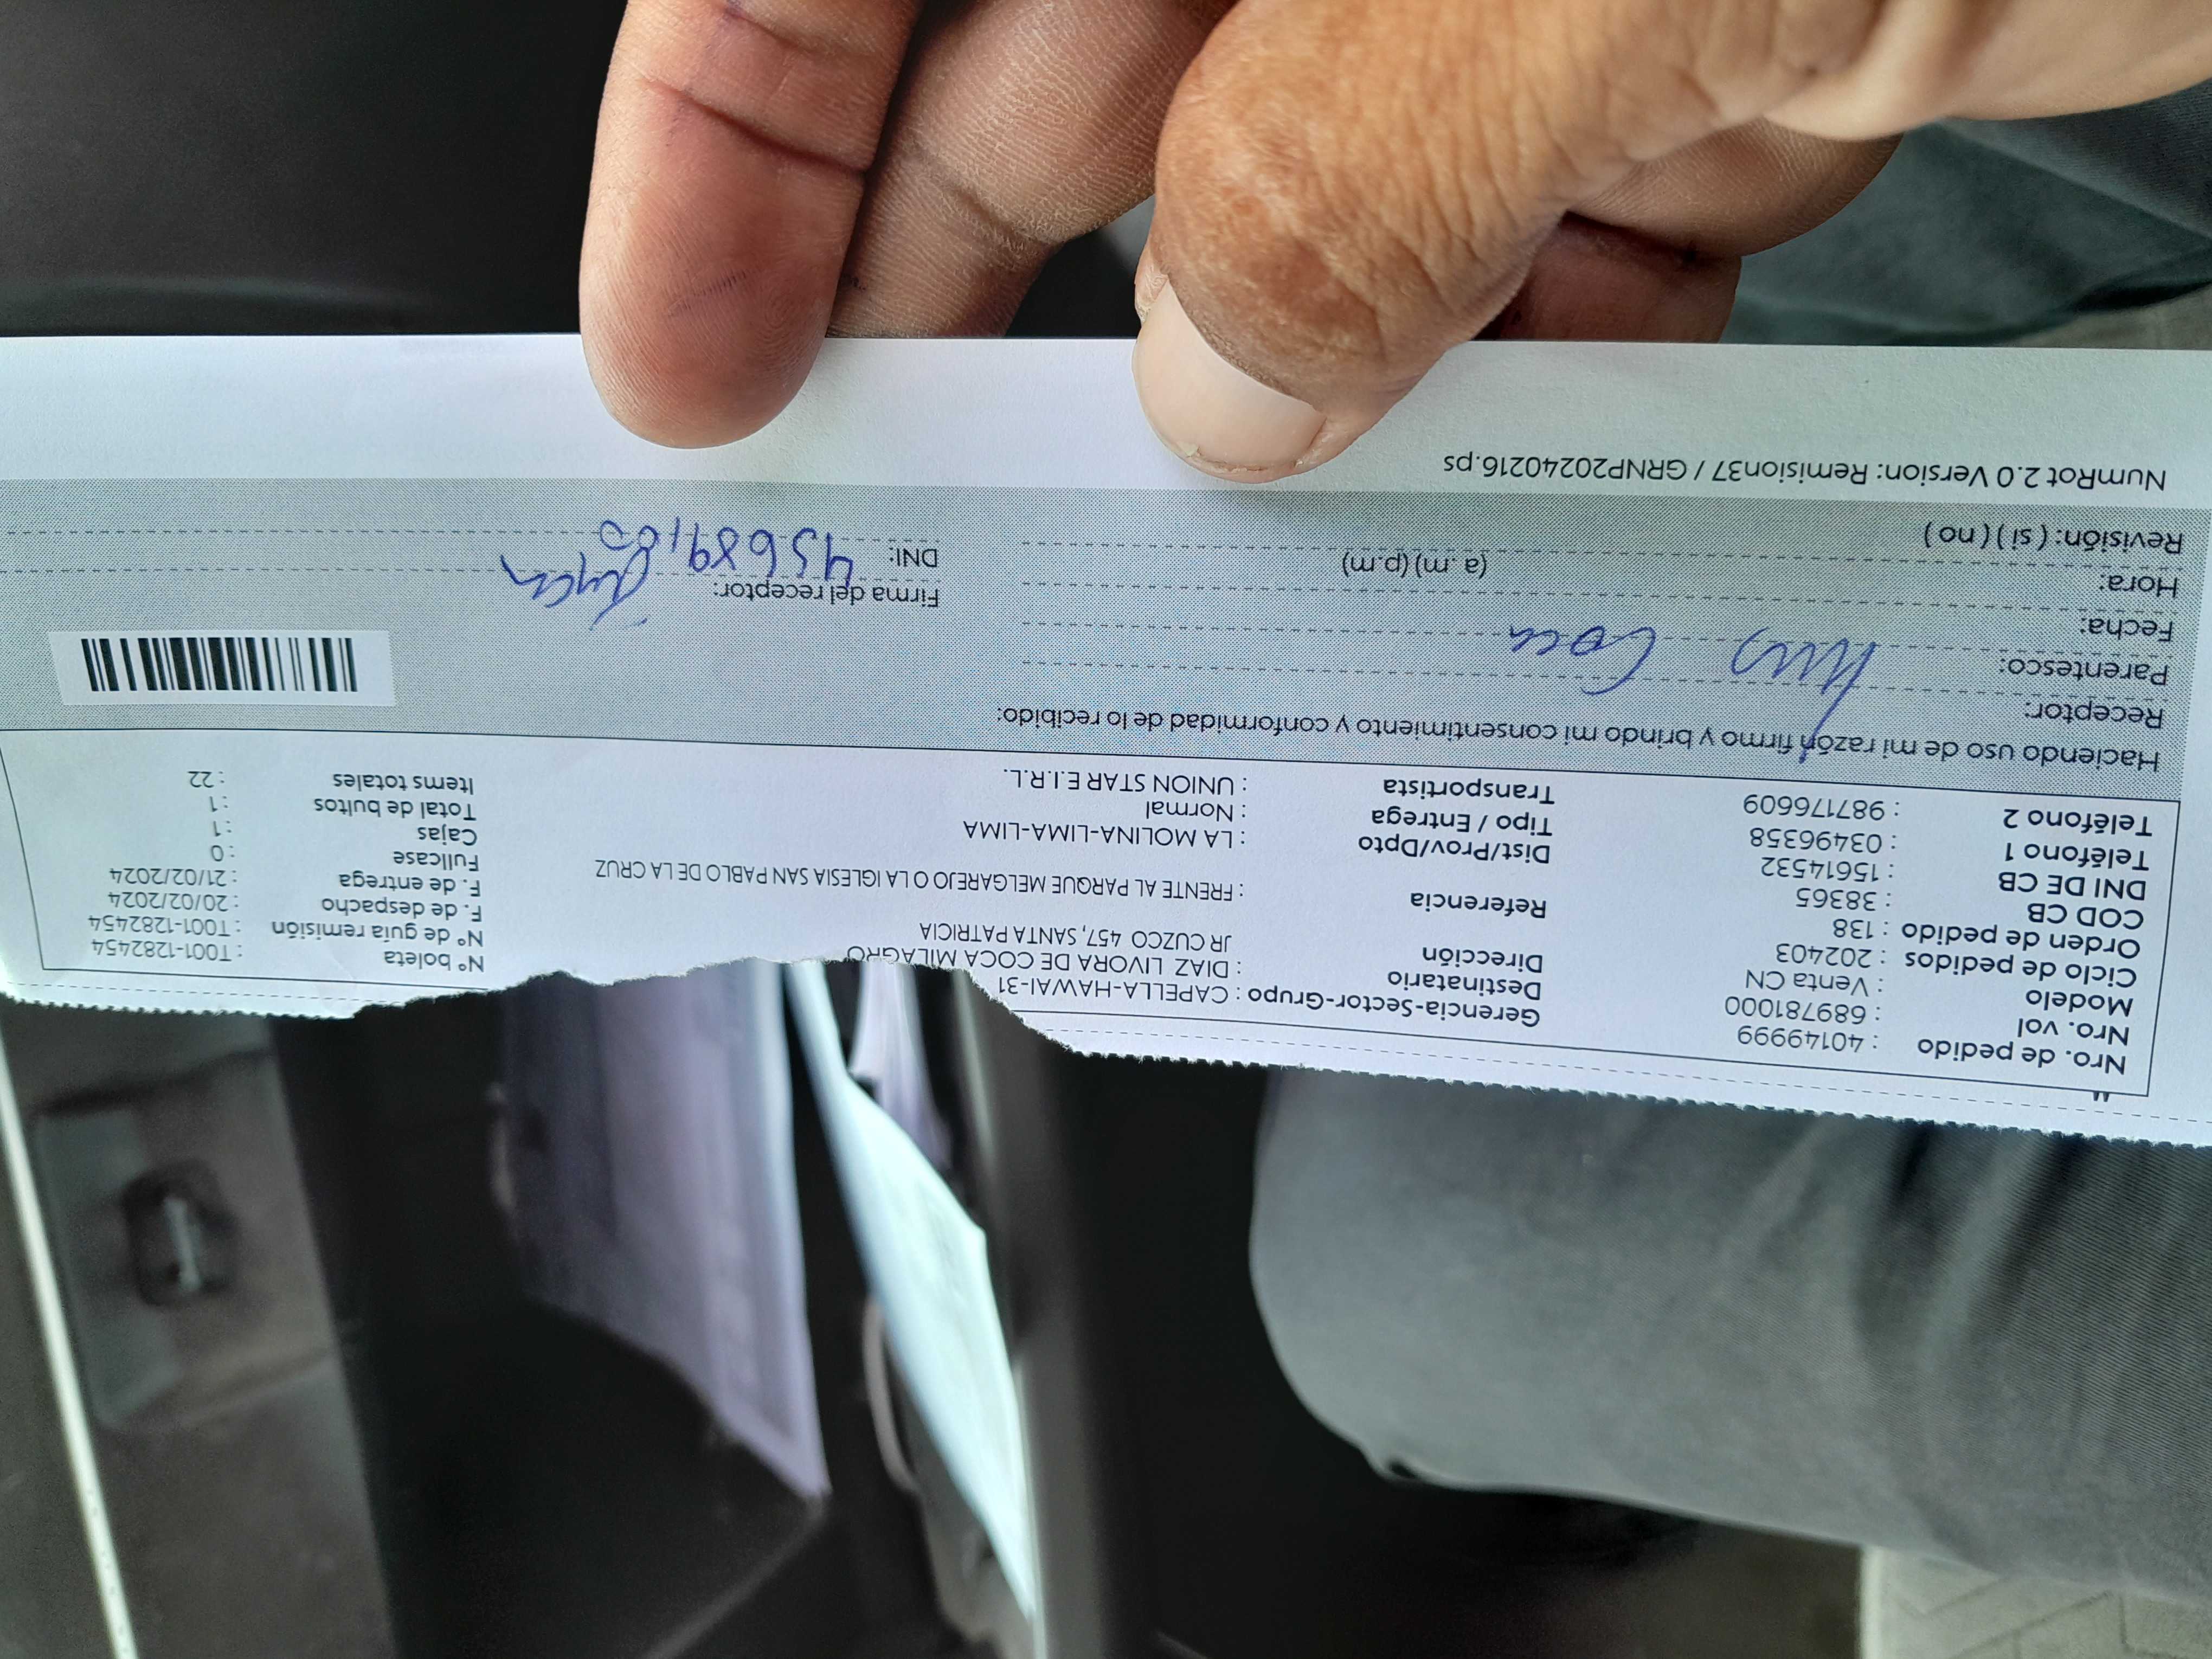 Nro. de pedido : 40149999
Nro. vol : 689781000
Modelo : Venta CN
Ciclo de pedidos : 202403
Orden de pedido : 138
COD CB : 38365
DNI DE CB : 15614532
Teléfono 1 : 03496358
Teléfono 2 : 987176609
Gerencia-Sector-Grupo : CAPELLA-HAWAI-31
Destinatario : DIAZ LIVORA DE COCA MILAGRO
Dirección JR CUZCO 457, SANTA PATRICIA
Referencia : FRENTE AL PARQUE MELGAREJO O LA IGLESIA SAN PABLO DE LA CRUZ
Dist/Prov/Dpto : LA MOLINA-LIMA-LIMA
Tipo / Entrega : Normal
Transportista : UNION STAR E.I.R.L.
N° boleta : T001-1282454
N° de guía remisión : T001-1282454
F. de despacho : 20/02/2024
F. de entrega : 21/02/2024
Fullcase : 0
Cajas : 1
Total de bultos : 1
Items totales : 22
Haciendo uso de mi razón firmo y brindo mi consentimiento y conformidad de lo recibido:
Receptor:
Parentesco: Coca
Fecha:
Hora: (a .m) (p.m)
Revisión: ( si ) ( no )
Firma del receptor:
DNI:
NumRot 2.0 Version: Remision37 / GRNP20240216.ps